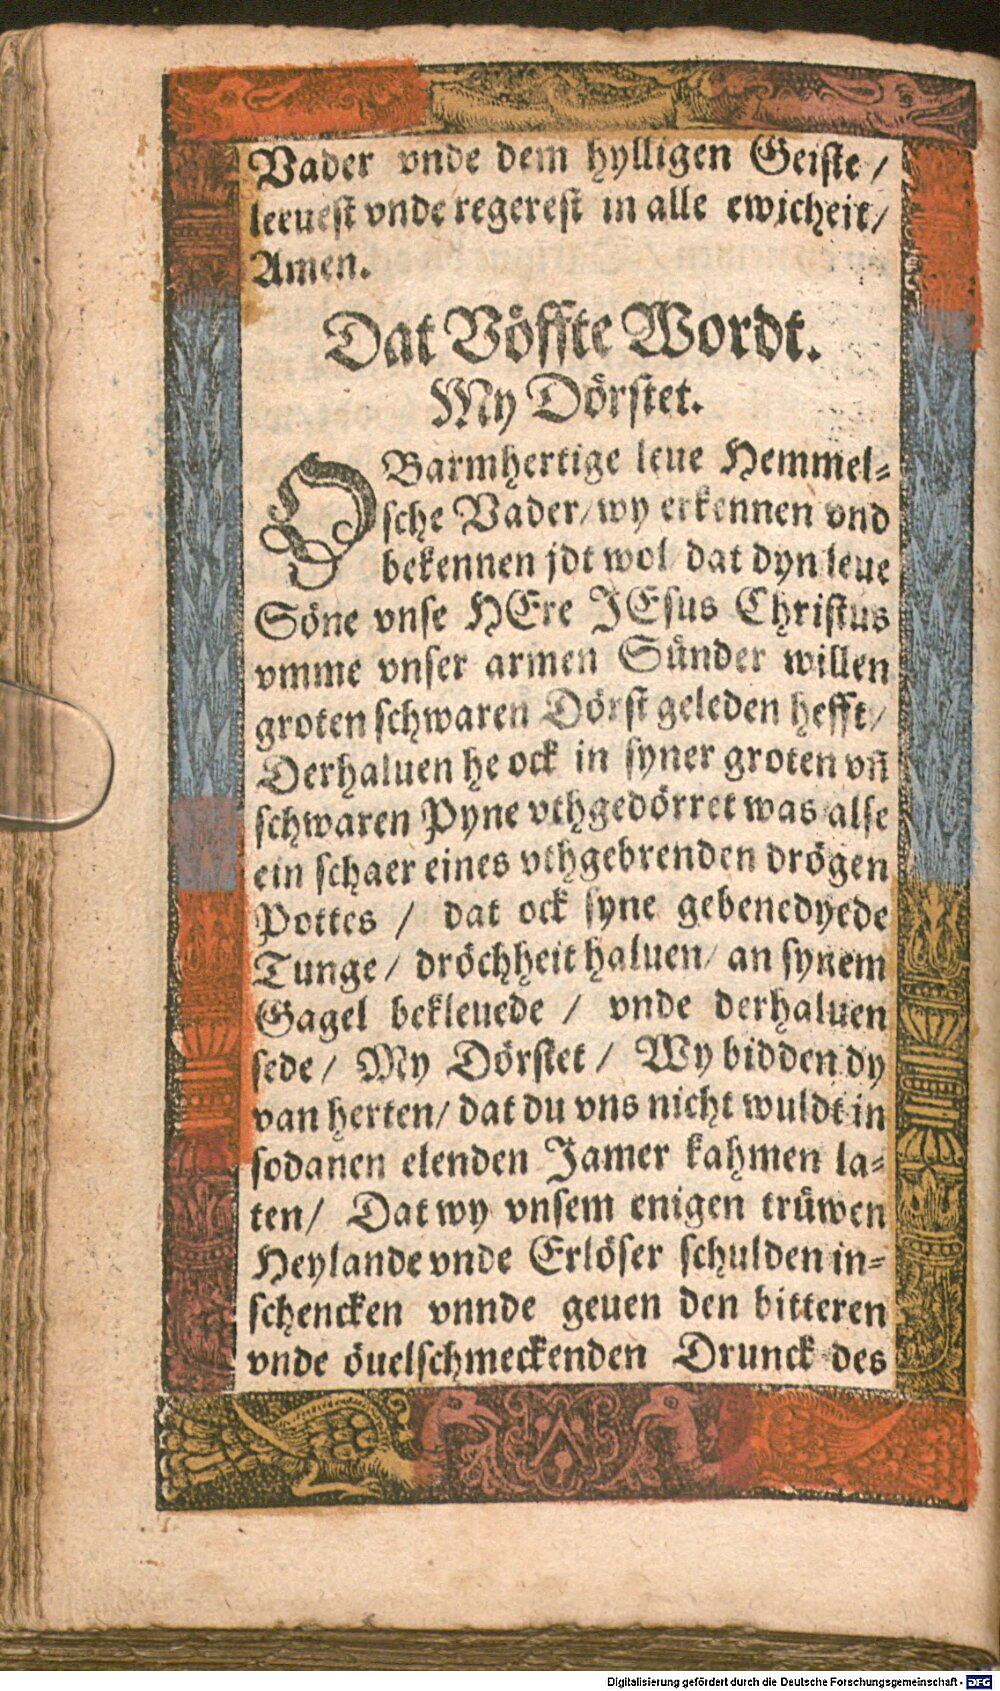 Vader vnde dem hylligen Geiste /
leeuest vnde regerest in alle ewicheit /
Amen.
Dat Vöffte Wordt.
My Dörstet.
O Barmhertige leue Hemmel⸗
sche Vader / wy erkennen vnd
bekennen jdt wol dat dyn leue
Söne vnse HEre JEsus Christus
vmme vnser armen Sünder willen
groten schwaren Dörst geleden hefft /
Derhaluen he ock in syner groten vn̄
schwaren Pyne vthgedörret was alse
ein schaer eines vthgebrenden drögen
Pottes / dat ock syne gebenedyede
Tunge / dröchheit haluen / an synem
Gagel bekleuede / vnde derhaluen
sede / My Dörstet / Wy bidden dy
van herten / dat du vns nicht wuldt in
sodanen elenden Jamer kahmen la⸗
ten / Dat wy vnsem enigen trüwen
Heylande vnde Erlöser schulden in⸗
schencken vnnde geuen den bitteren
vnde öuelschmeckenden Drunck des
Digitalisierung gefördert durch die Deutsche Forschungsgemeinschaft - DFG